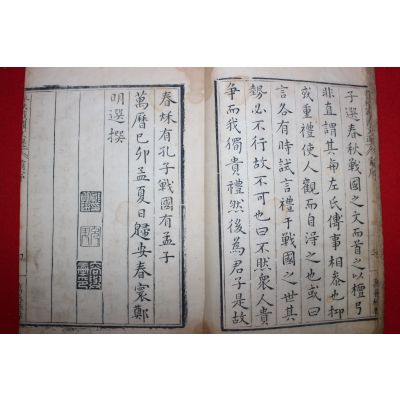 子選春秋戰國之文而首之以檀弓
非直謂其與左氏傳事相叅也抑
或重禮使人觀而自淂之也或曰
言各有時試言禮于戰國之世其
勢必不行故不可也曰不然衆人貴
爭而我獨貴禮然後為君子是故
春秌有孔子戰國有孟子
萬曆己卯孟夏日歸安春寰鄭
明選撰